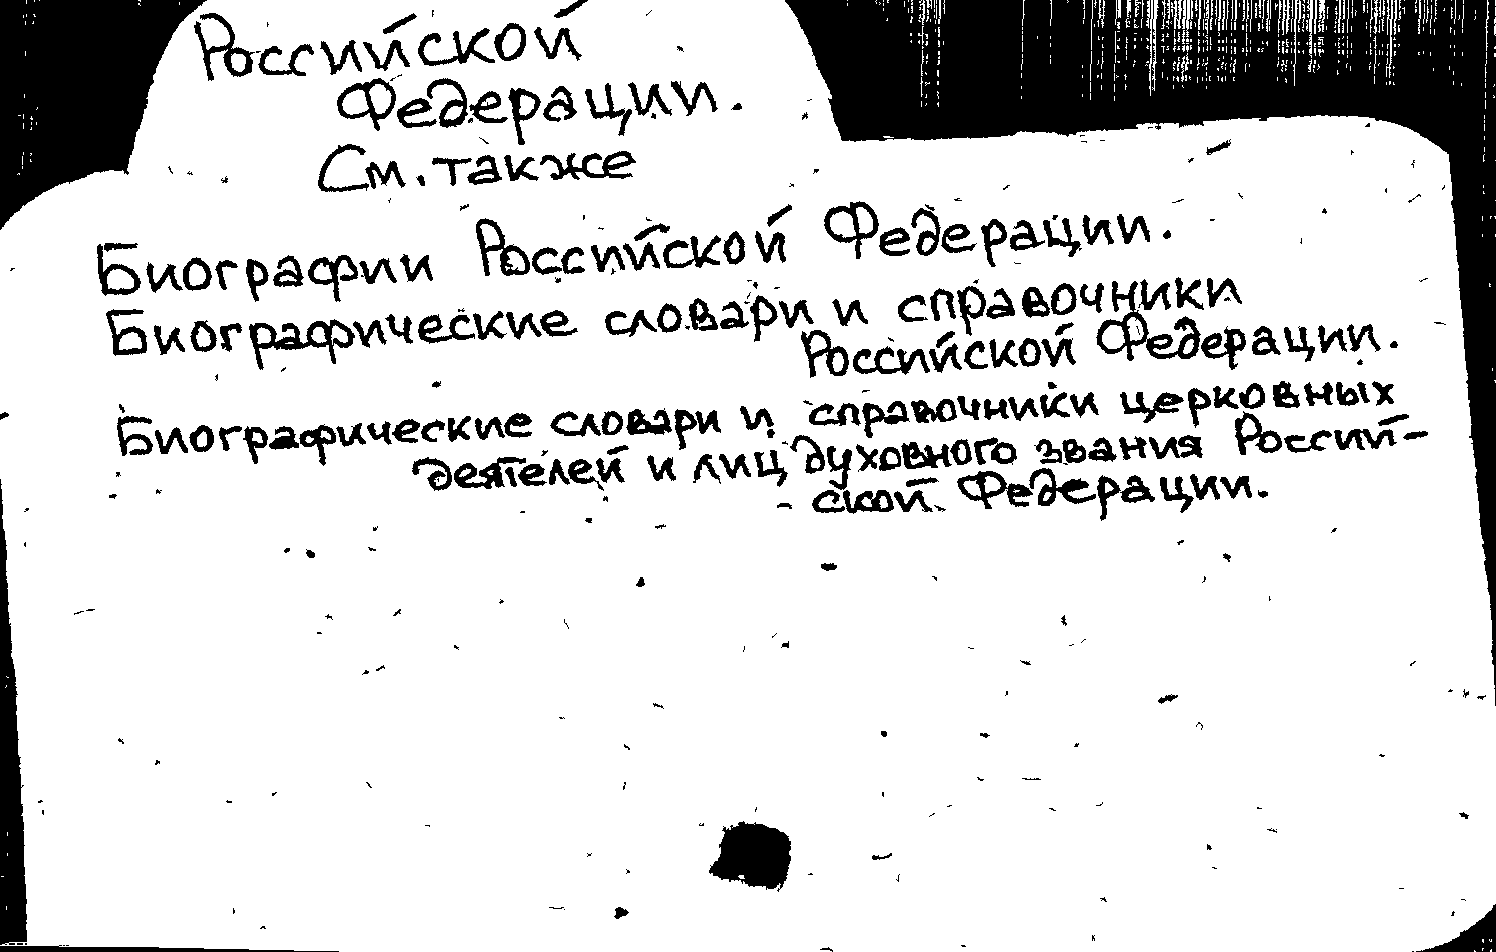 Российской
Федерации.
См. также
Биографии Российской Федерации.
Биографические словари и справочники
Российской Федерации.
Биографические словари и справочники церковных
деятелей и лиц духовного звания Россий-
- ской Федерации.